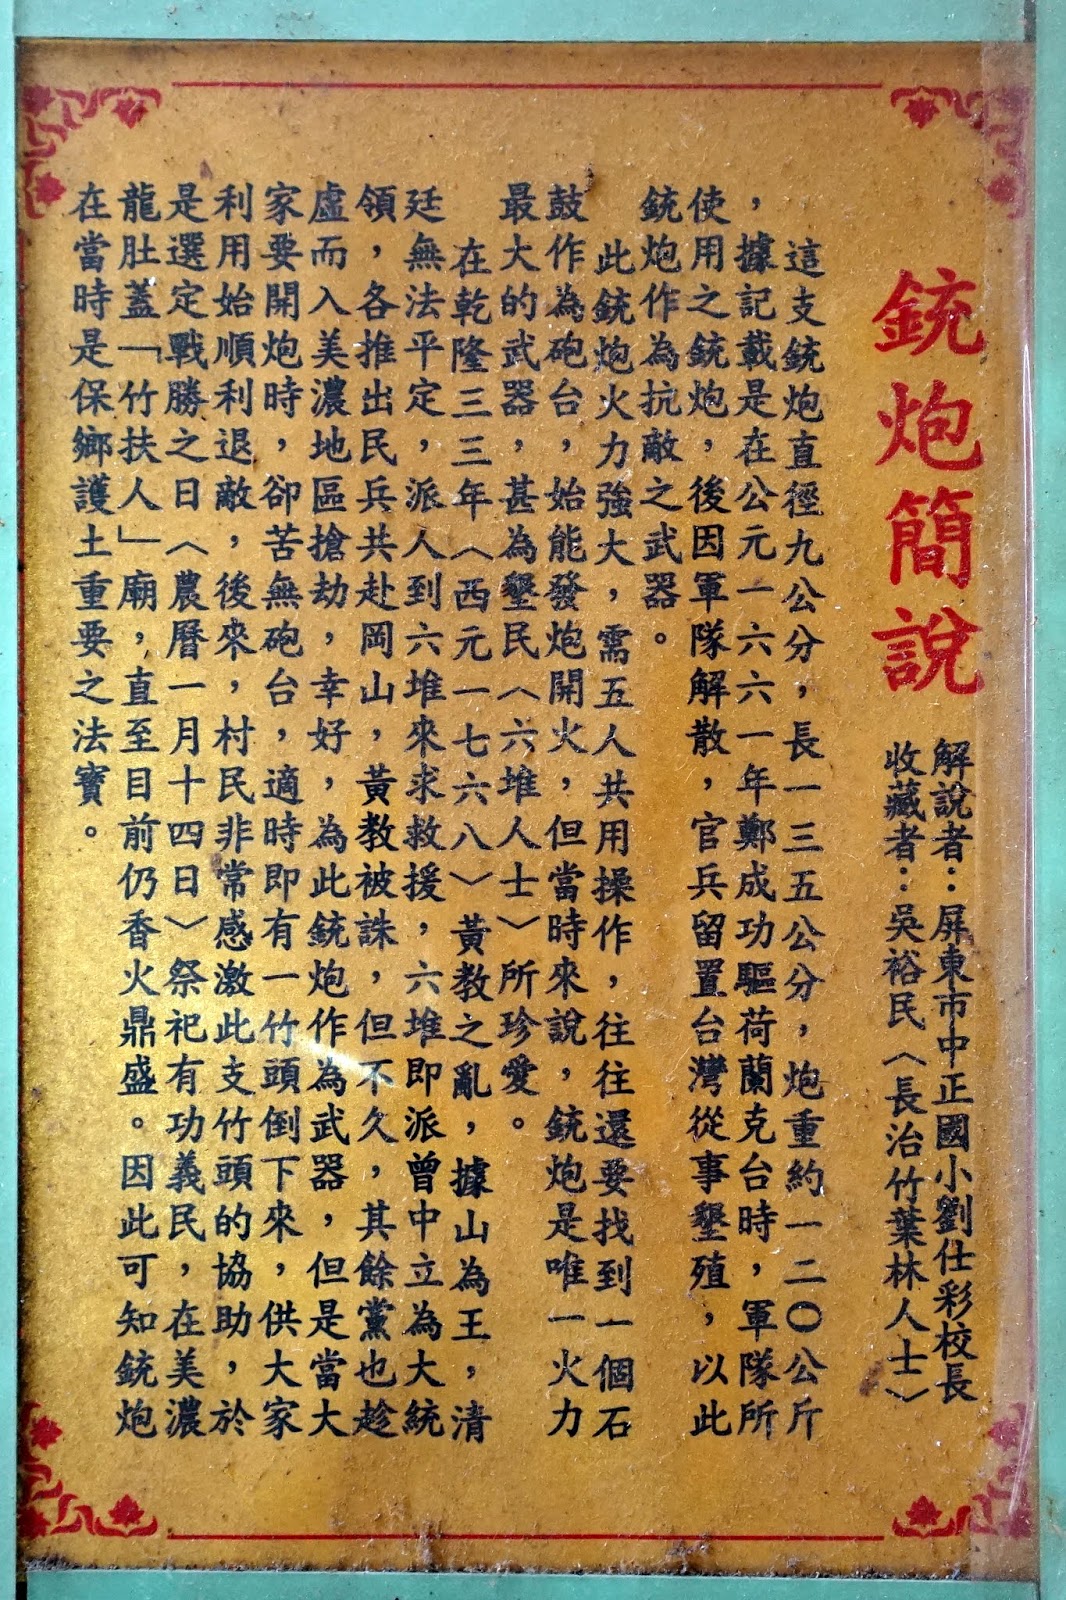 銃炮簡說
解說者：屏東市中正國小劉仕彩校長
收藏者：吳裕民︵長治竹葉林人士︶
這支銃炮直徑九公分，長一三五公分，炮重約一二〇公斤
，據記載是在公元一六六一年鄭成功驅荷蘭克台時，軍隊所
使用之銃炮，後因軍隊解散，官兵留置台灣從事墾殖，以此
銃炮作為抗敵之武器。
此銃炮火力強大，需五人共用操作，往往還要找到一個石
鼓作為砲台，始能發炮開火，但當時來說，銃炮是唯一火力
最大的武器，甚為墾民︵六堆人士︶所珍愛。
在乾隆三三年︵西元一七六八︶黃教之亂，據山為王，清
廷無法平定，派人到六堆來求救援，六堆即派曾中立為大統
領，各推出民兵共赴岡山，黃教被誅，但不久，其餘黨也趁
虛而入美濃地區搶劫，幸好，為此銃炮作為武器，但是當大
家要開炮時，卻苦無砲台，適時即有一竹頭倒下來，供大家
利用始順利退敵，後來，村民非常感激此支竹頭的協助，於
是選定戰勝之日︵農曆一月十四日︶祭祀有功義民，在美濃
龍肚蓋「竹扶人」廟，直至目前仍香火鼎盛。因此可知銃炮
在當時是保鄉護土重要之法寶。